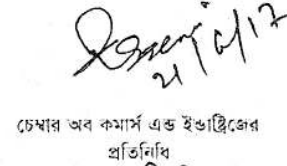 ২১/৫/১৭
চেম্বার অব কমার্স এন্ড ইন্ডাষ্ট্রিজের
প্রতিনিধি